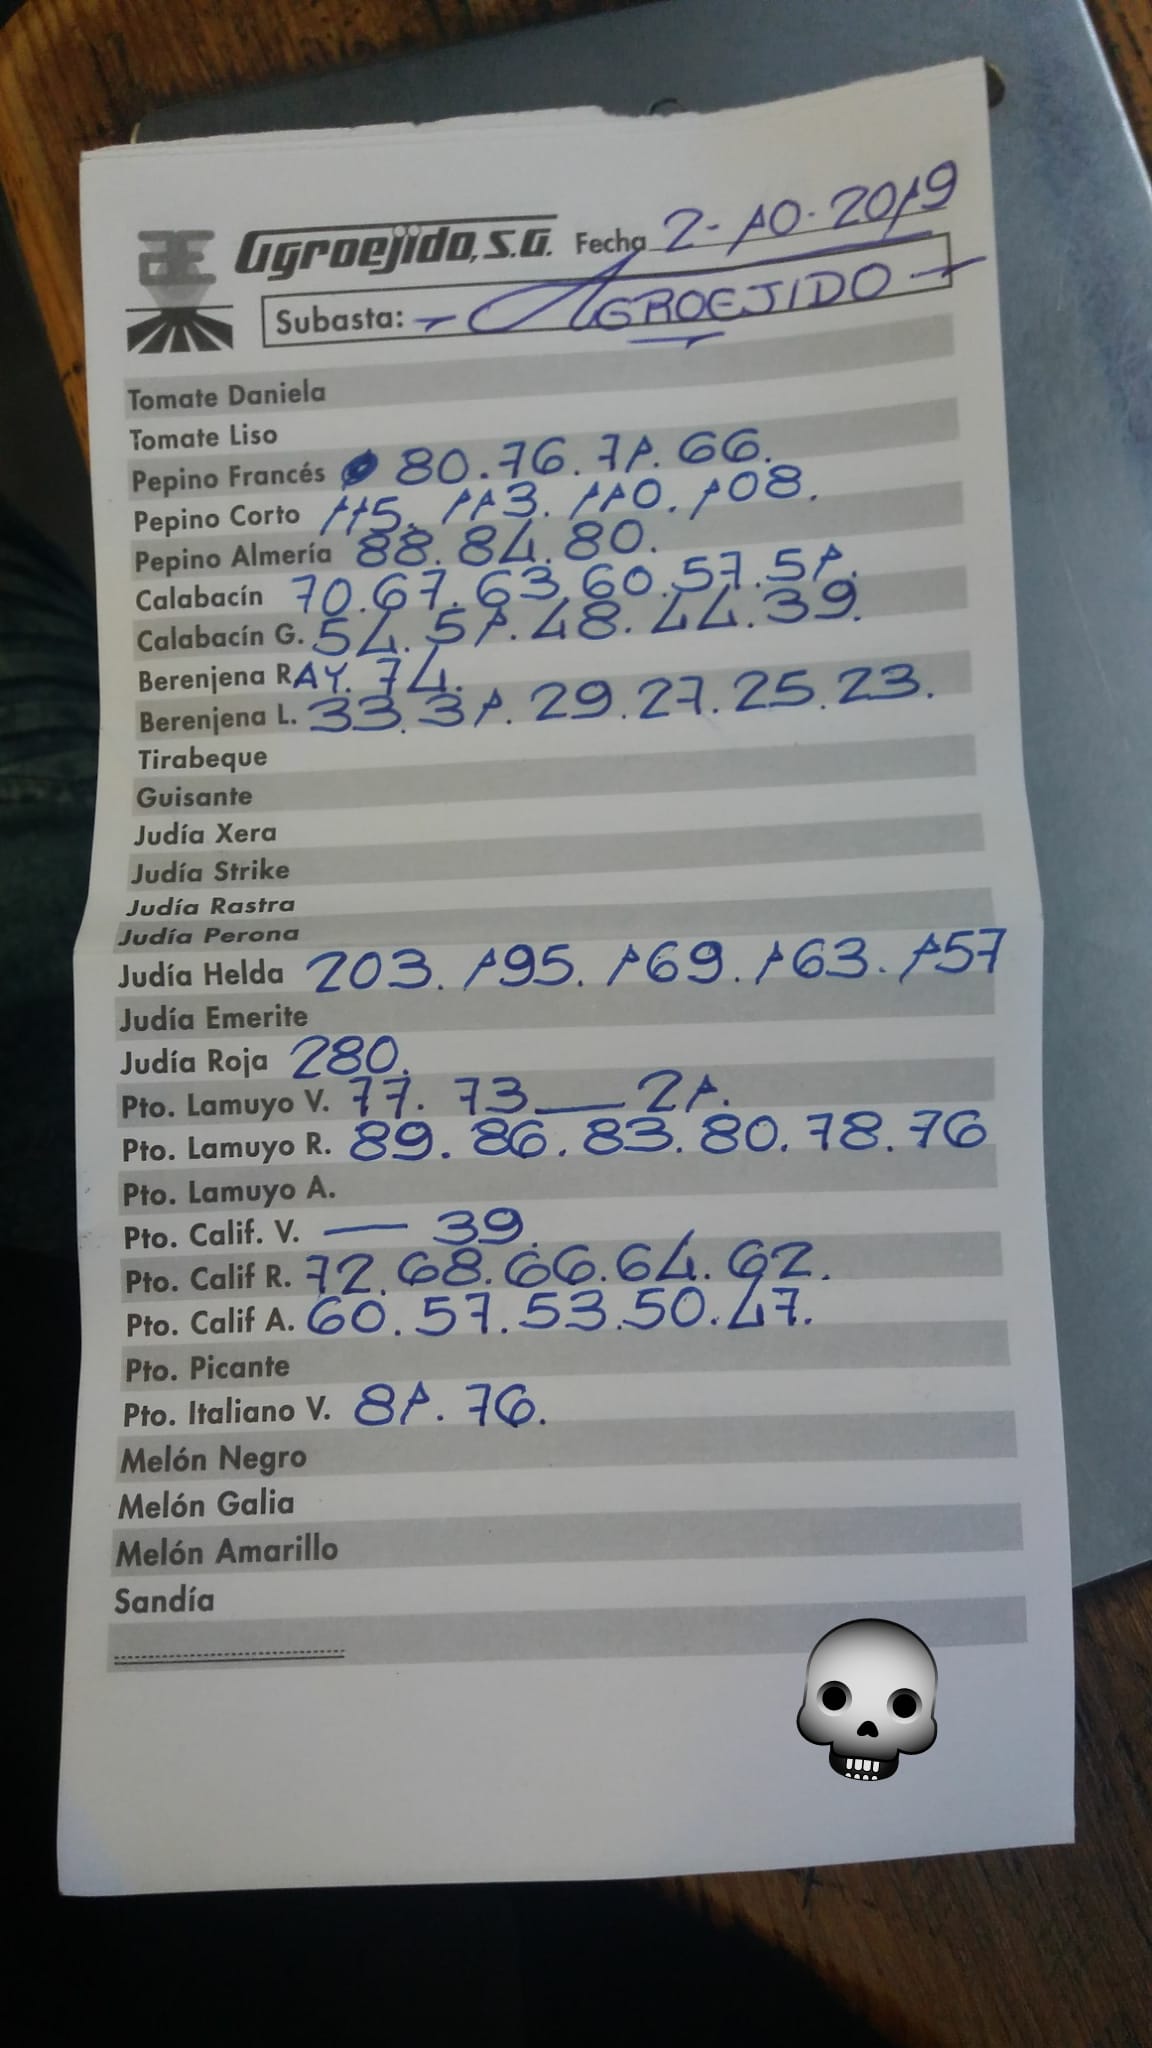 Agroejido, S.A. Fecha 2-10-2019
Subasta: - AGROEJIDO -
Tomate Daniela
Tomate Liso
Pepino Francés 80.76.71.66.
Pepino Corto 115. 113. 110. 108.
Pepino Almería 88. 84. 80.
Calabacín 70.67.63.60.57.51.
Calabacín G. 54. 51. 48. 44. 39.
Berenjena RAY. 74.
Berenjena L. 33. 31. 29. 27. 25. 23.
Tirabeque
Guisante
Judía Xera
Judía Strike
Judía Rastra
Judía Perona
Judía Helda 203. 195. 169. 163. 157
Judía Emerite
Judía Roja 280.
Pto. Lamuyo V. 77. 73 — 21.
Pto. Lamuyo R. 89. 86. 83. 80. 78. 76
Pto. Lamuyo A.
Pto. Calif. V. — 39.
Pto. Calif R. 72. 68. 66. 64. 62.
Pto. Calif A. 60. 57. 53. 50. 47.
Pto. Picante
Pto. Italiano V. 81. 76.
Melón Negro
Melón Galia
Melón Amarillo
Sandía